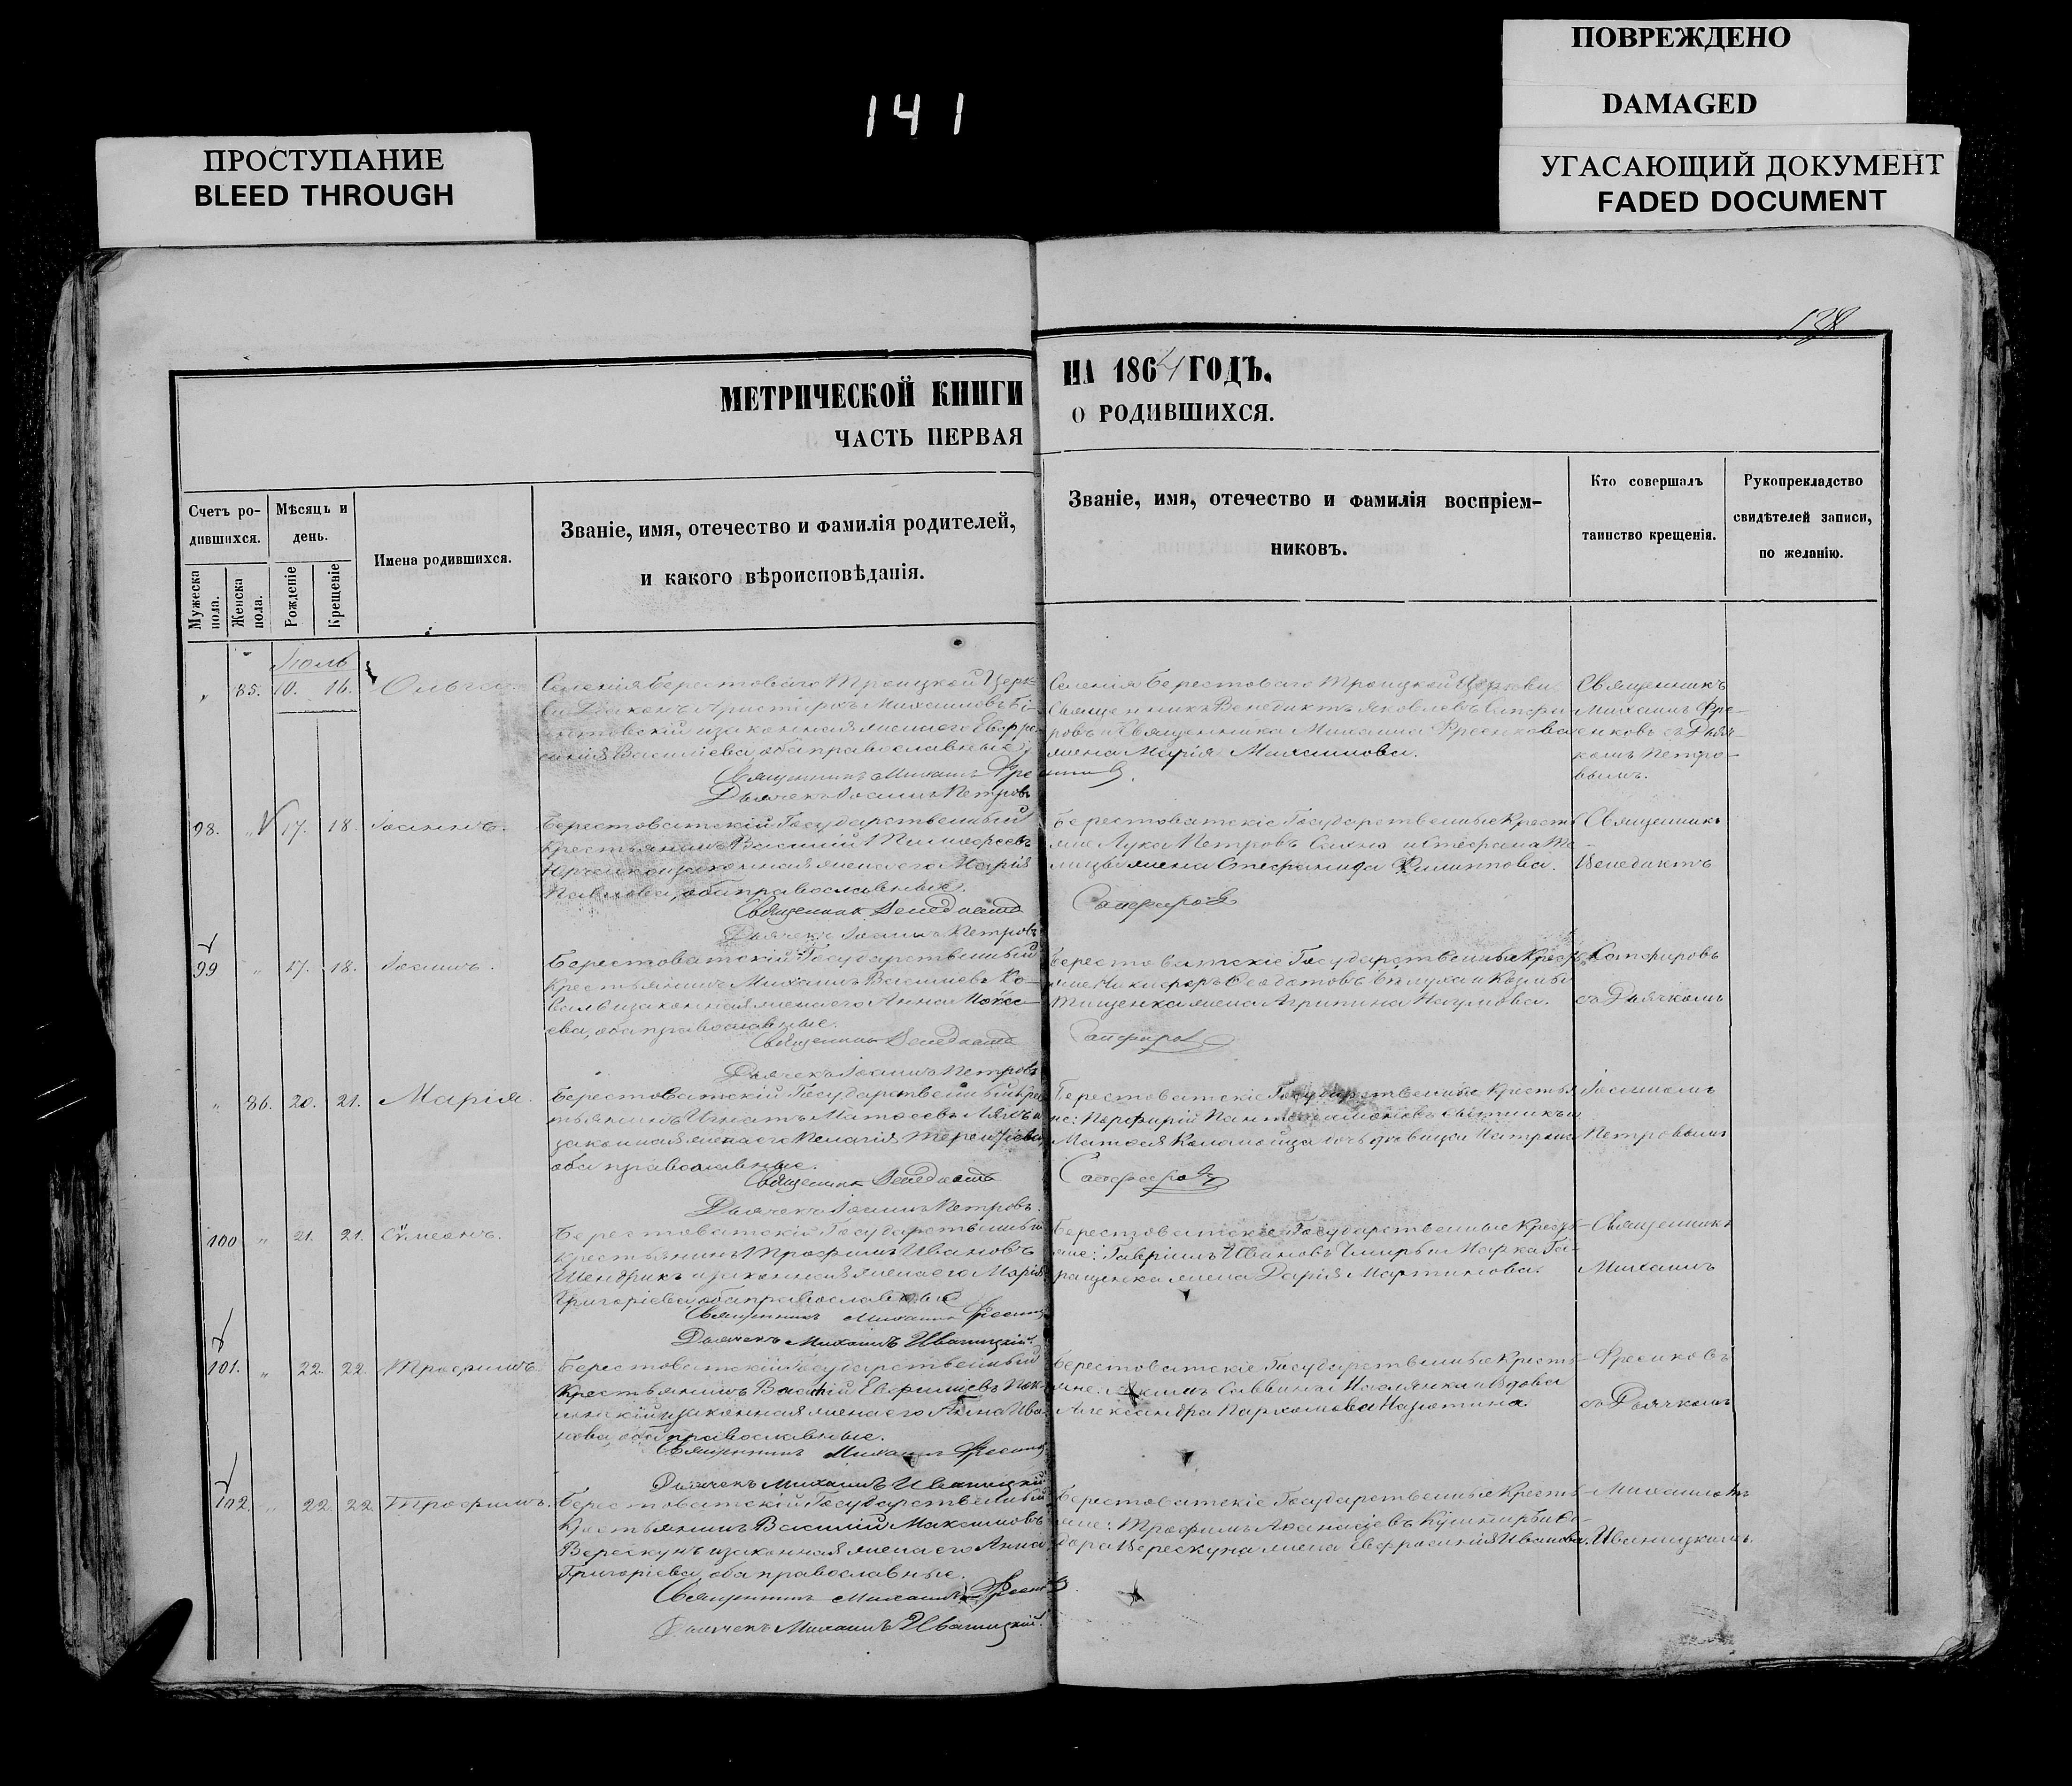 ПОВРЕЖДЕНО
DAMAGED
141
ПРОСТУПАНИЕ
BLEED THROUGH
УГАСАЮЩИЙ ДОКУМЕНТ
FADED DOCUMENT
138
МЕТРИЧЕСКОЙ КНИГИ НА 1864 ГОДЪ.
ЧАСТЬ ПЕРВАЯ О РОДИВШИХСЯ.
Счетъ ро-
дившихся.
Мужеска пола.
Женска пола.
Мѣсяцъ и
день.
Рожденіе
Крещеніе
Имена родившихся.
Званіе, имя, отечество и фамилія родителей,
и какого вѣроисповѣданія.
Званіе, имя, отечество и фамилія воспріем-
никовъ.
Кто совершалъ
таинство крещенія.
Рукоприкладство
свидѣтелей записи,
по желанію.
Іюль
" 85. 10. 16. Ольга.
Селенія Берестоваго Троицкой Церк-
ви Діаконъ Аристархъ Михайловъ
законная жена его Евфро-
синія Васильева, оба православные
Священникъ Михаилъ
Дьячекъ Іоаннъ Петровъ
Селенія Берестоваго Троицкой Церкви
Священникъ Венедиктъ Яковлевъ Сапфи-
ровъ и Священника Михаила Фесенкова
жена Марія Михайлова.
Священникъ
Михаилъ Фе-
сенковъ съ Дьяч-
комъ Петро-
вымъ.
98. " 17. 18. Іоаннъ.
Берестоватскій Государственный
крестьянинъ Василій Тимофеевъ
законная жена его Марія
Павлова, оба православные.
Священникъ Венедиктъ Сапфировъ
Дьячекъ Іоаннъ Петровъ
Берестоватскіе Государственные Кресть-
яне Лука Петровъ и Стефана
жена Стефанида Филиппова.
Священникъ
Венедиктъ
99 " 17. 18. Іоаннъ.
Берестоватскій Государственный
Крестьянинъ Михаилъ Васильевъ Ко-
валь и законная жена его Анна Моисе-
ева, оба православные.
Священникъ Венедиктъ Сапфировъ
Дьячекъ Іоаннъ Петровъ
Берестоватскіе Государственные Кресть-
яне Никифоръ Ѳеодотовъ и Козьмы
Тищенка жена Агрипина Наумова.
Сапфировъ
съ Дьячкомъ
" 86. 20. 21. Марія.
Берестоватскій Государственный Крес-
тьянинъ Игнатъ Матѳеевъ
законная жена его Пелагія Терентіева,
оба православные.
Священникъ Венедиктъ Сапфировъ
Дьячекъ Іоаннъ Петровъ.
Берестоватскіе Государственные Крестья-
не: Порфирій Пантелеимоновъ и
Матѳея Коломойца дочь
Іоанномъ
Петровымъ
100 " 21. 21. Сѵмеонъ.
Берестоватскій Государственный
крестьянинъ Трофимъ Ивановъ
Шендрикъ и законная жена его Марія
Григоріева, оба православные
Священникъ Михаилъ
Дьячекъ Михаилъ Иваницкій.
Берестоватскіе Государственные Кресть-
яне: Гавріилъ Ивановъ и Марка Га-
ращенка жена Дарія Мартинова.
Священникъ
Михаилъ
101. " 22. 22. Трофимъ.
Берестоватскій Государственный
Крестьянинъ Василій Евфиміевъ
и законная жена его Анна Ива-
нова, оба православные.
Священникъ Михаилъ
Дьячекъ Михаилъ Иваницкій
Берестоватскіе Государственные Кресть-
яне: Акимъ Саввинъ и Вдова
Александра Пархомова
Фесенковъ
съ Дьячкомъ
102. " 22. 22. Трофимъ.
Берестоватскій Государственный
Крестьянинъ Василій Максимовъ
Верескунъ и законная жена его Анна
Григоріева, оба православные.
Священникъ Михаилъ
Дьячекъ Михаилъ Иваницкій.
Берестоватскіе Государственные Кресть-
яне: Трофимъ Аѳанасіевъ Кушниръ и Си-
дора Верескуна жена Евфросинія Иванова.
Михаиломъ
Иваницкимъ.